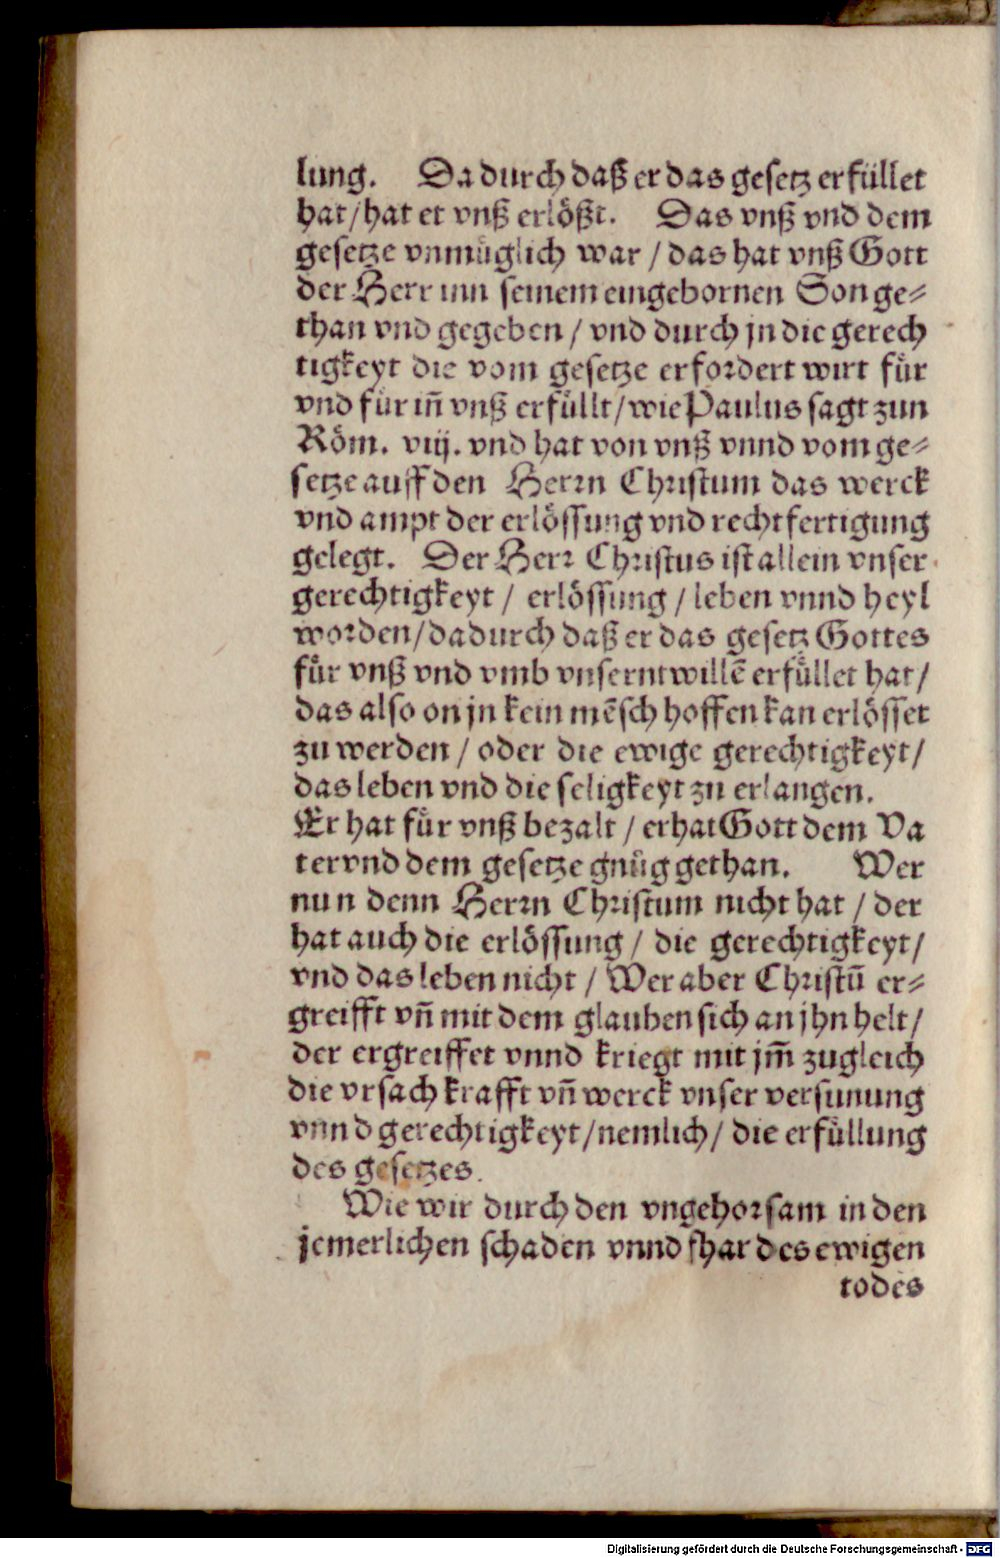 lung. Da durch daß er das gesetz erfüllet
hat/hat et vnß erlößt. Das vnß vnd dem
gesetze vnmüglich war / das hat vnß Gott
der Herr inn seinem eingebornen Son ge⸗
than vnd gegeben / vnd durch jn die gerech
tigkeyt die vom gesetze erfordert wirt für
vnd für iñ vnß erfüllt/wie Paulus sagt zun
Röm. viij. vnd hat von vnß vnnd vom ge⸗
setze auff den Herrn Christum das werck
vnd ampt der erlössung vnd rechtfertigung
gelegt. Der Herr Christus ist allein vnser
gerechtigkeyt / erlössung / leben vnnd heyl
worden/dadurch daß er das gesetz Gottes
für vnß vnd vmb vnserntwillẽ erfüllet hat/
das also on jn kein mẽsch hoffen kan erlösset
zu werden / oder die ewige gerechtigkeyt/
das leben vnd die seligkeyt zu erlangen.
Er hat für vnß bezalt / er hat Gott dem Va
ter vnd dem gesetze gnüg gethan. Wer
nun denn Herrn Christum nicht hat / der
hat auch die erlössung / die gerechtigkeyt/
vnd das leben nicht / Wer aber Christū er⸗
greifft vñ mit dem glauben sich an jhn helt/
der ergreiffet vnnd kriegt mit jm̃ zugleich
die vrsach krafft vñ werck vnser versunung
vnnd gerechtigkeyt/nemlich/ die erfüllung
des gesetzes.
Wie wir durch den vngehorsam in den
jemerlichen schaden vnnd fhar des ewigen
todes
Digitalisierung gefördert durch die Deutsche Forschungsgemeinschaft - DFG